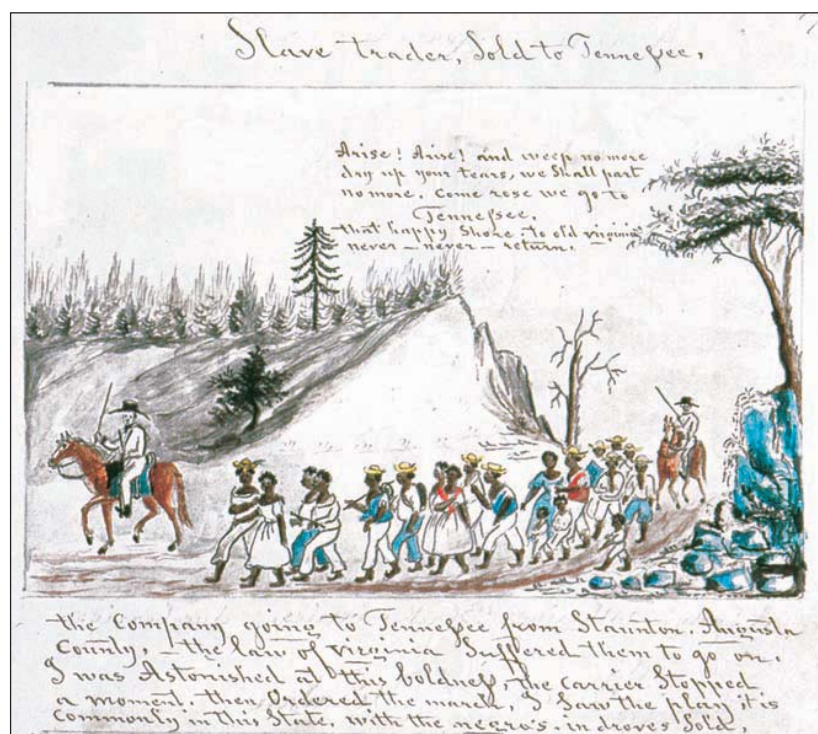 Slave trader, Sold to Tennessee,
Arise! Arise! and weep no more
dry up your tears, we Shall part
no more. Come rose we go to
Tennessee,
that happy Shore to old virginia
never - never - return.
the Company going to Tennessee from Staunton, Augusta
County, - the law of virginia Suffered them to go on.
I was Astonished at this boldness, the carrier Stopped
a moment, then Ordered the march, I Saw the play it is
Commonly in this State, with the negro's in droves Sold.